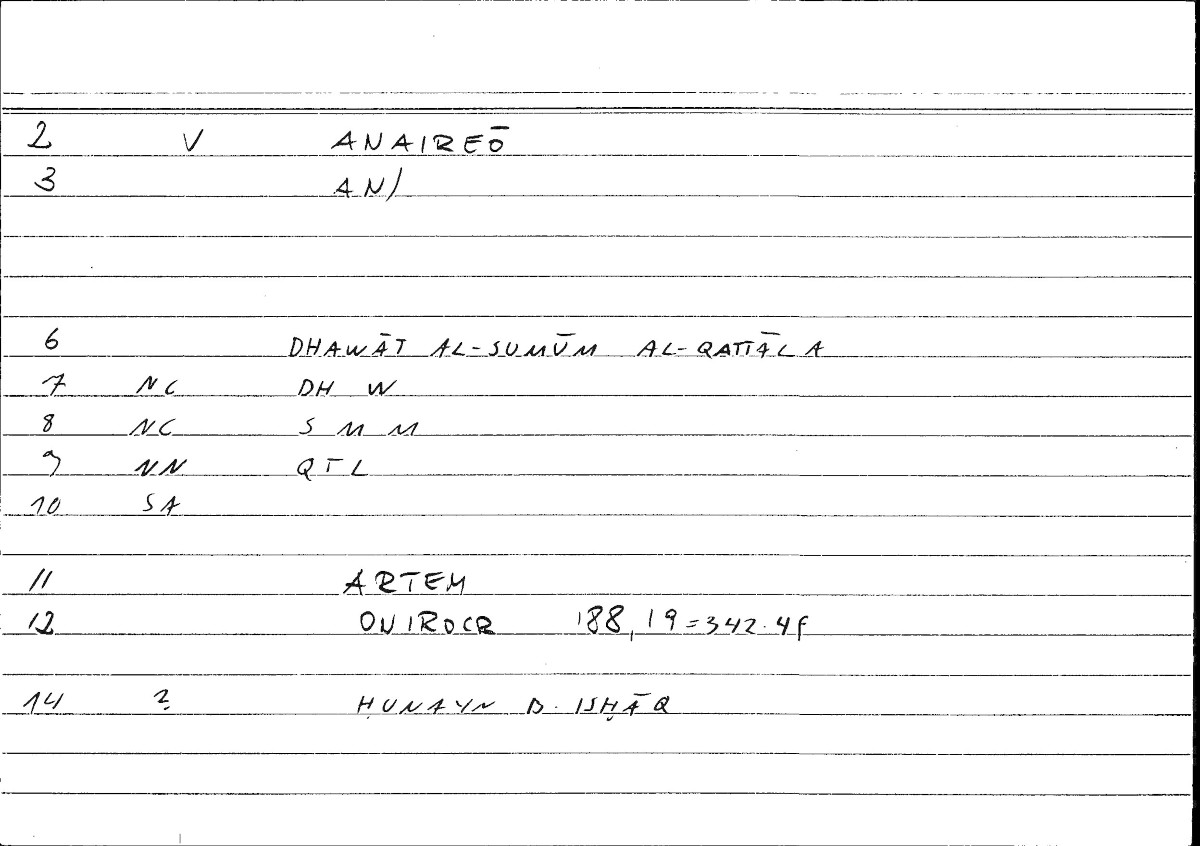 2 V ANAIREŌ
3 AN/
6 DHAWĀT AL-SUMŪM AL-QATTĀLA
7 NC DH W
8 NC S M M
9 NN QTL
10 SA
11 ARTEM
12 ONIROCR 188,19=342.4f
14 ? ḤUNAYN B. ISḤĀQ